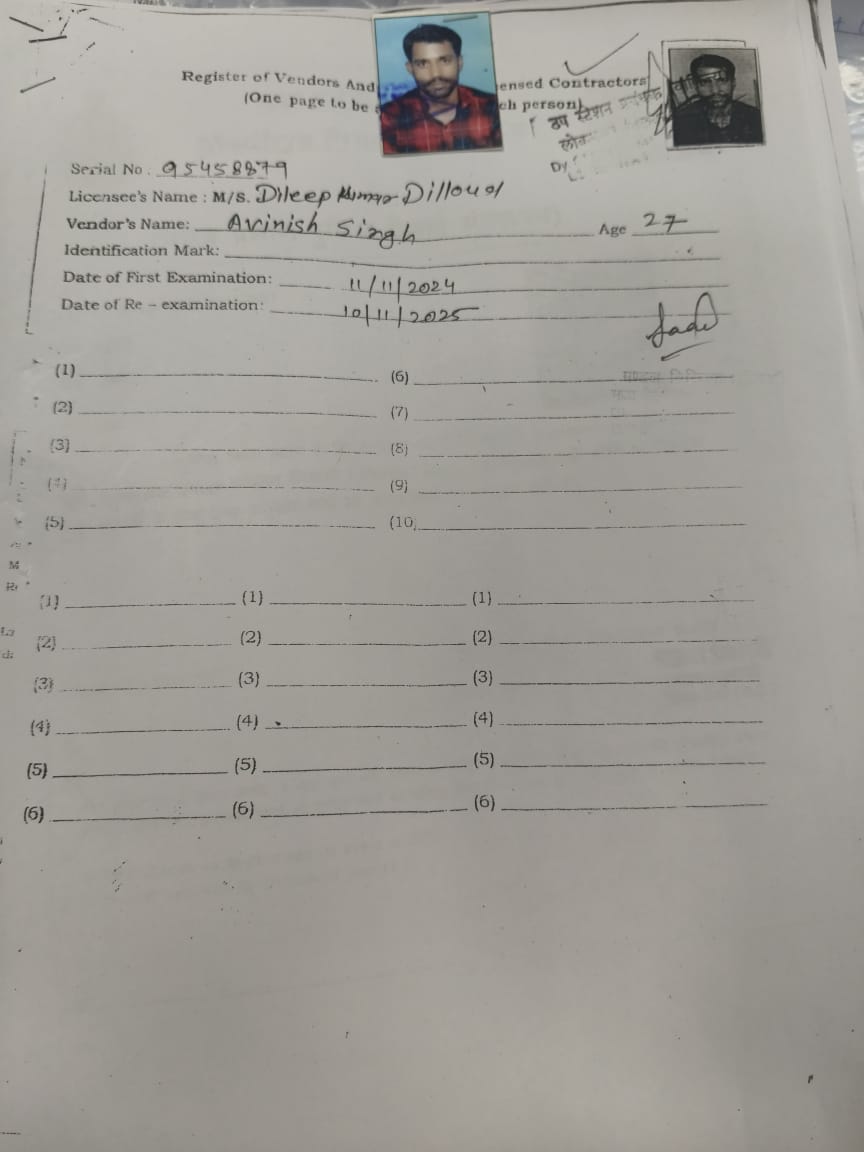 Register of Vendors And ensed Contractors
(One page to be ch person)
उप स्टेशन प्रबंधक
Dy
Serial No. 95458879
Licensee's Name : M/S. Dileep Kumar
Vendor's Name: Avinish Singh Age 27
Identification Mark:
Date of First Examination: 11/11/2024
Date of Re - examination: 10/11/2025
(1) (6)
(2) (7)
(3) (8)
(4) (9)
(5) (10)
M
(1) (1) (1)
(2) (2) (2)
(3) (3) (3)
(4) (4) (4)
(5) (5) (5)
(6) (6) (6)